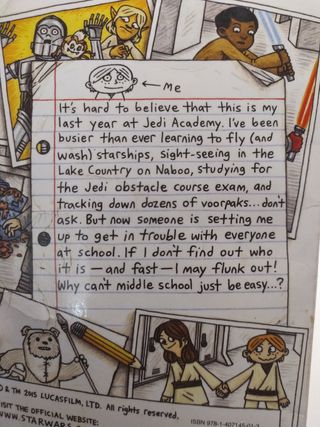 ← Me
It's hard to believe that this is my
last year at Jedi Academy. I've been
busier than ever learning to fly (and
wash) starships, sight-seeing in the
Lake Country on Naboo, studying for
the Jedi obstacle course exam, and
tracking down dozens of voorpaks...don't
ask. But now someone is setting me
up to get in trouble with everyone
at school. If I don't find out who
it is — and fast — I may flunk out!
Why can't middle school just be easy...?
& TM 2015 LUCASFILM, LTD. All rights reserved.
VISIT THE OFFICIAL WEBSITE:
WWW.STARWARS.
ISBN 978-1-407145-01-